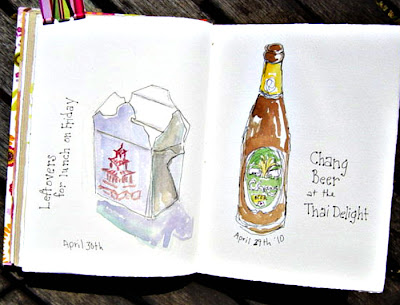 Leftovers
for lunch on Friday
April 30th
Chang
BEER
Chang
Beer
at the
Thai Delight
April 29th '10